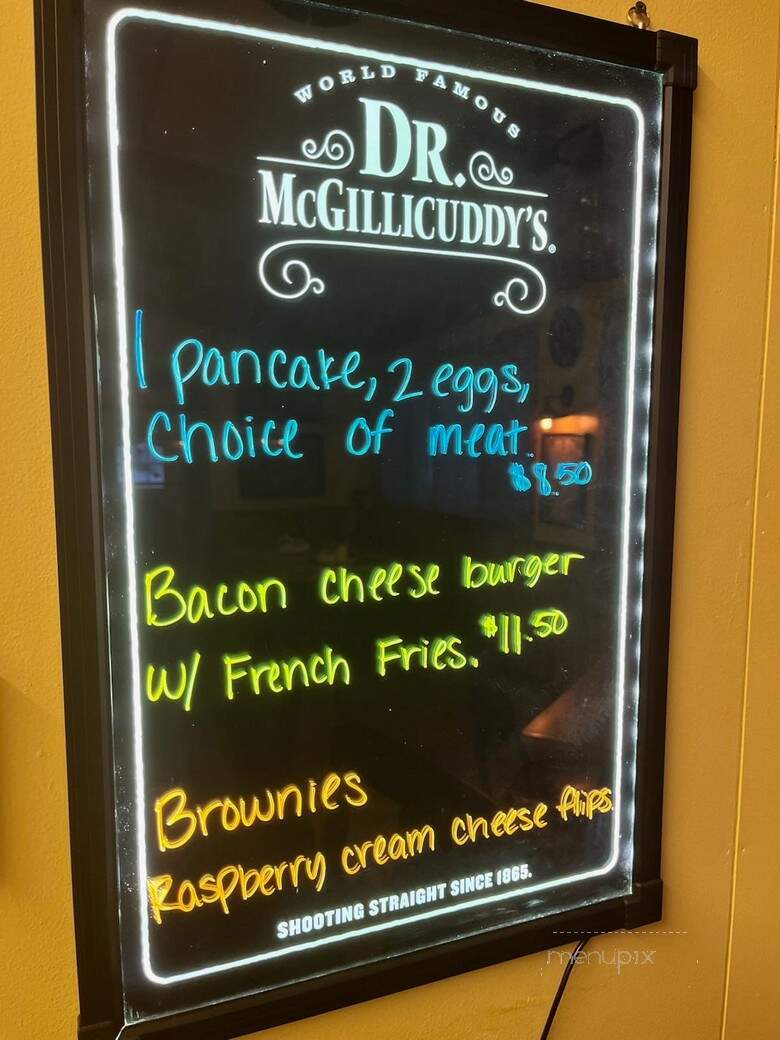 WORLD FAMOUS
DR.
McGILLICUDDY'S®
1 pancake, 2 eggs,
Choice of meat.
$8.50
Bacon cheese burger
w/ French Fries. $11.50
Brownies
Raspberry cream cheese flips.
SHOOTING STRAIGHT SINCE 1865.
menupix